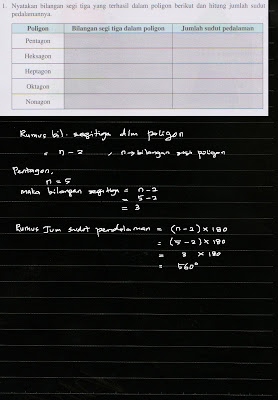 1. Nyatakan bilangan segi tiga yang terhasil dalam poligon berikut dan hitung jumlah sudut
pedalamannya.
Poligon Bilangan segi tiga dalam poligon Jumlah sudut pedalaman
Pentagon
Heksagon
Heptagon
Oktagon
Nonagon
Rumus bil. segitiga dlm poligon
= n - 2 , n → bilangan sisi poligon
Pentagon,
n = 5
maka bilangan segitiga = n - 2
= 5 - 2
= 3
Rumus Jum sudut pendalaman = (n - 2) × 180
= (5 - 2) × 180
= 3 × 180
= 560°